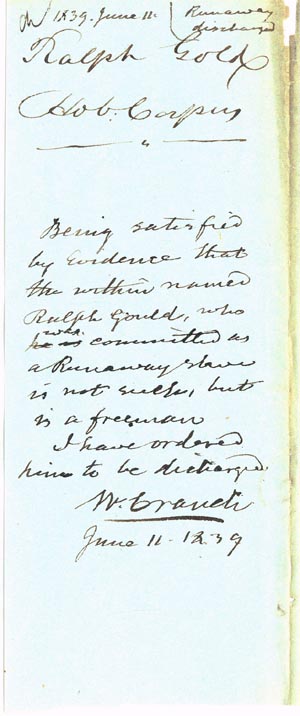 1839. June 11. Runaway
discharged
Ralph Gold
Hob. Corpus
Being satisfied
by Evidence that
the within named
Ralph Gould, who
was
he is committed as
a Runaway slave
is not such, but
is a freeman
I have ordered
him to be discharged
W. Cranch
June 11. 1839